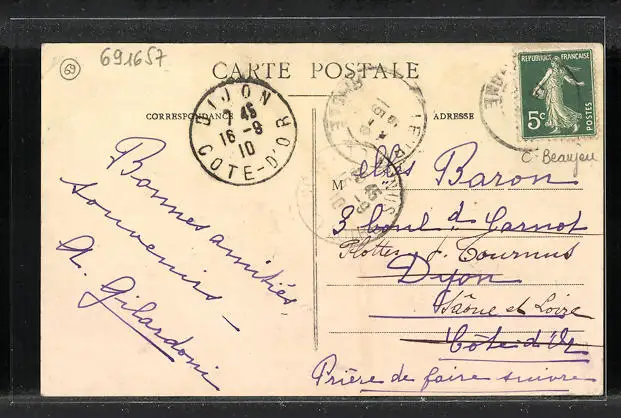 69
691657
CARTE POSTALE
CORRESPONDANCE
ADRESSE
DIJON
45
16-9
10
COTE-D'OR
REPUBLIQUE FRANÇAISE
5c
POSTES
C. Beaujeu
Bonnes amitiés,
souvenirs
A. Gilardoni
Melles Baron
3 boul d Carnot
Tournus
Dijon
Saône et Loire
Côte d'Or
Prière de faire suivre